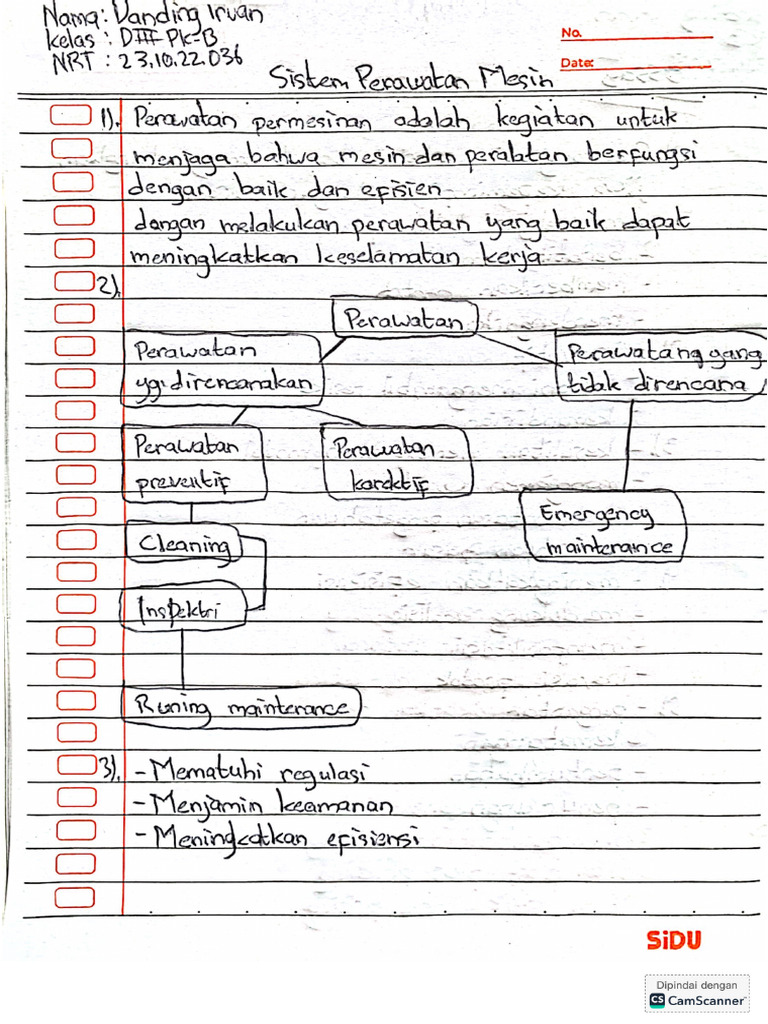 Nama: Vanding Irvan
Kelas : DIII-PK-B
NRT : 23.10.22.036
No.
Date:
Sistem Perawatan Mesin
1). Perawatan permesinan adalah kegiatan untuk
menjaga bahwa mesin dan peralatan berfungsi
dengan baik dan efisien
dangan melakukan perawatan yang baik dapat
meningkatkan keselamatan kerja
2).
Perawatan
Perawatan
yg. direncanakan
Perawatang yang
tidak direncana
Perawatan
preventif
Perawatan
korektif
Emergency
mainterance
Cleaning
Inspektri
Runing mainterance
3). - Mematuhi regulasi
- Menjamin keamanan
- Meningkatkan efisiensi
SiDU
Dipindai dengan
CS CamScanner